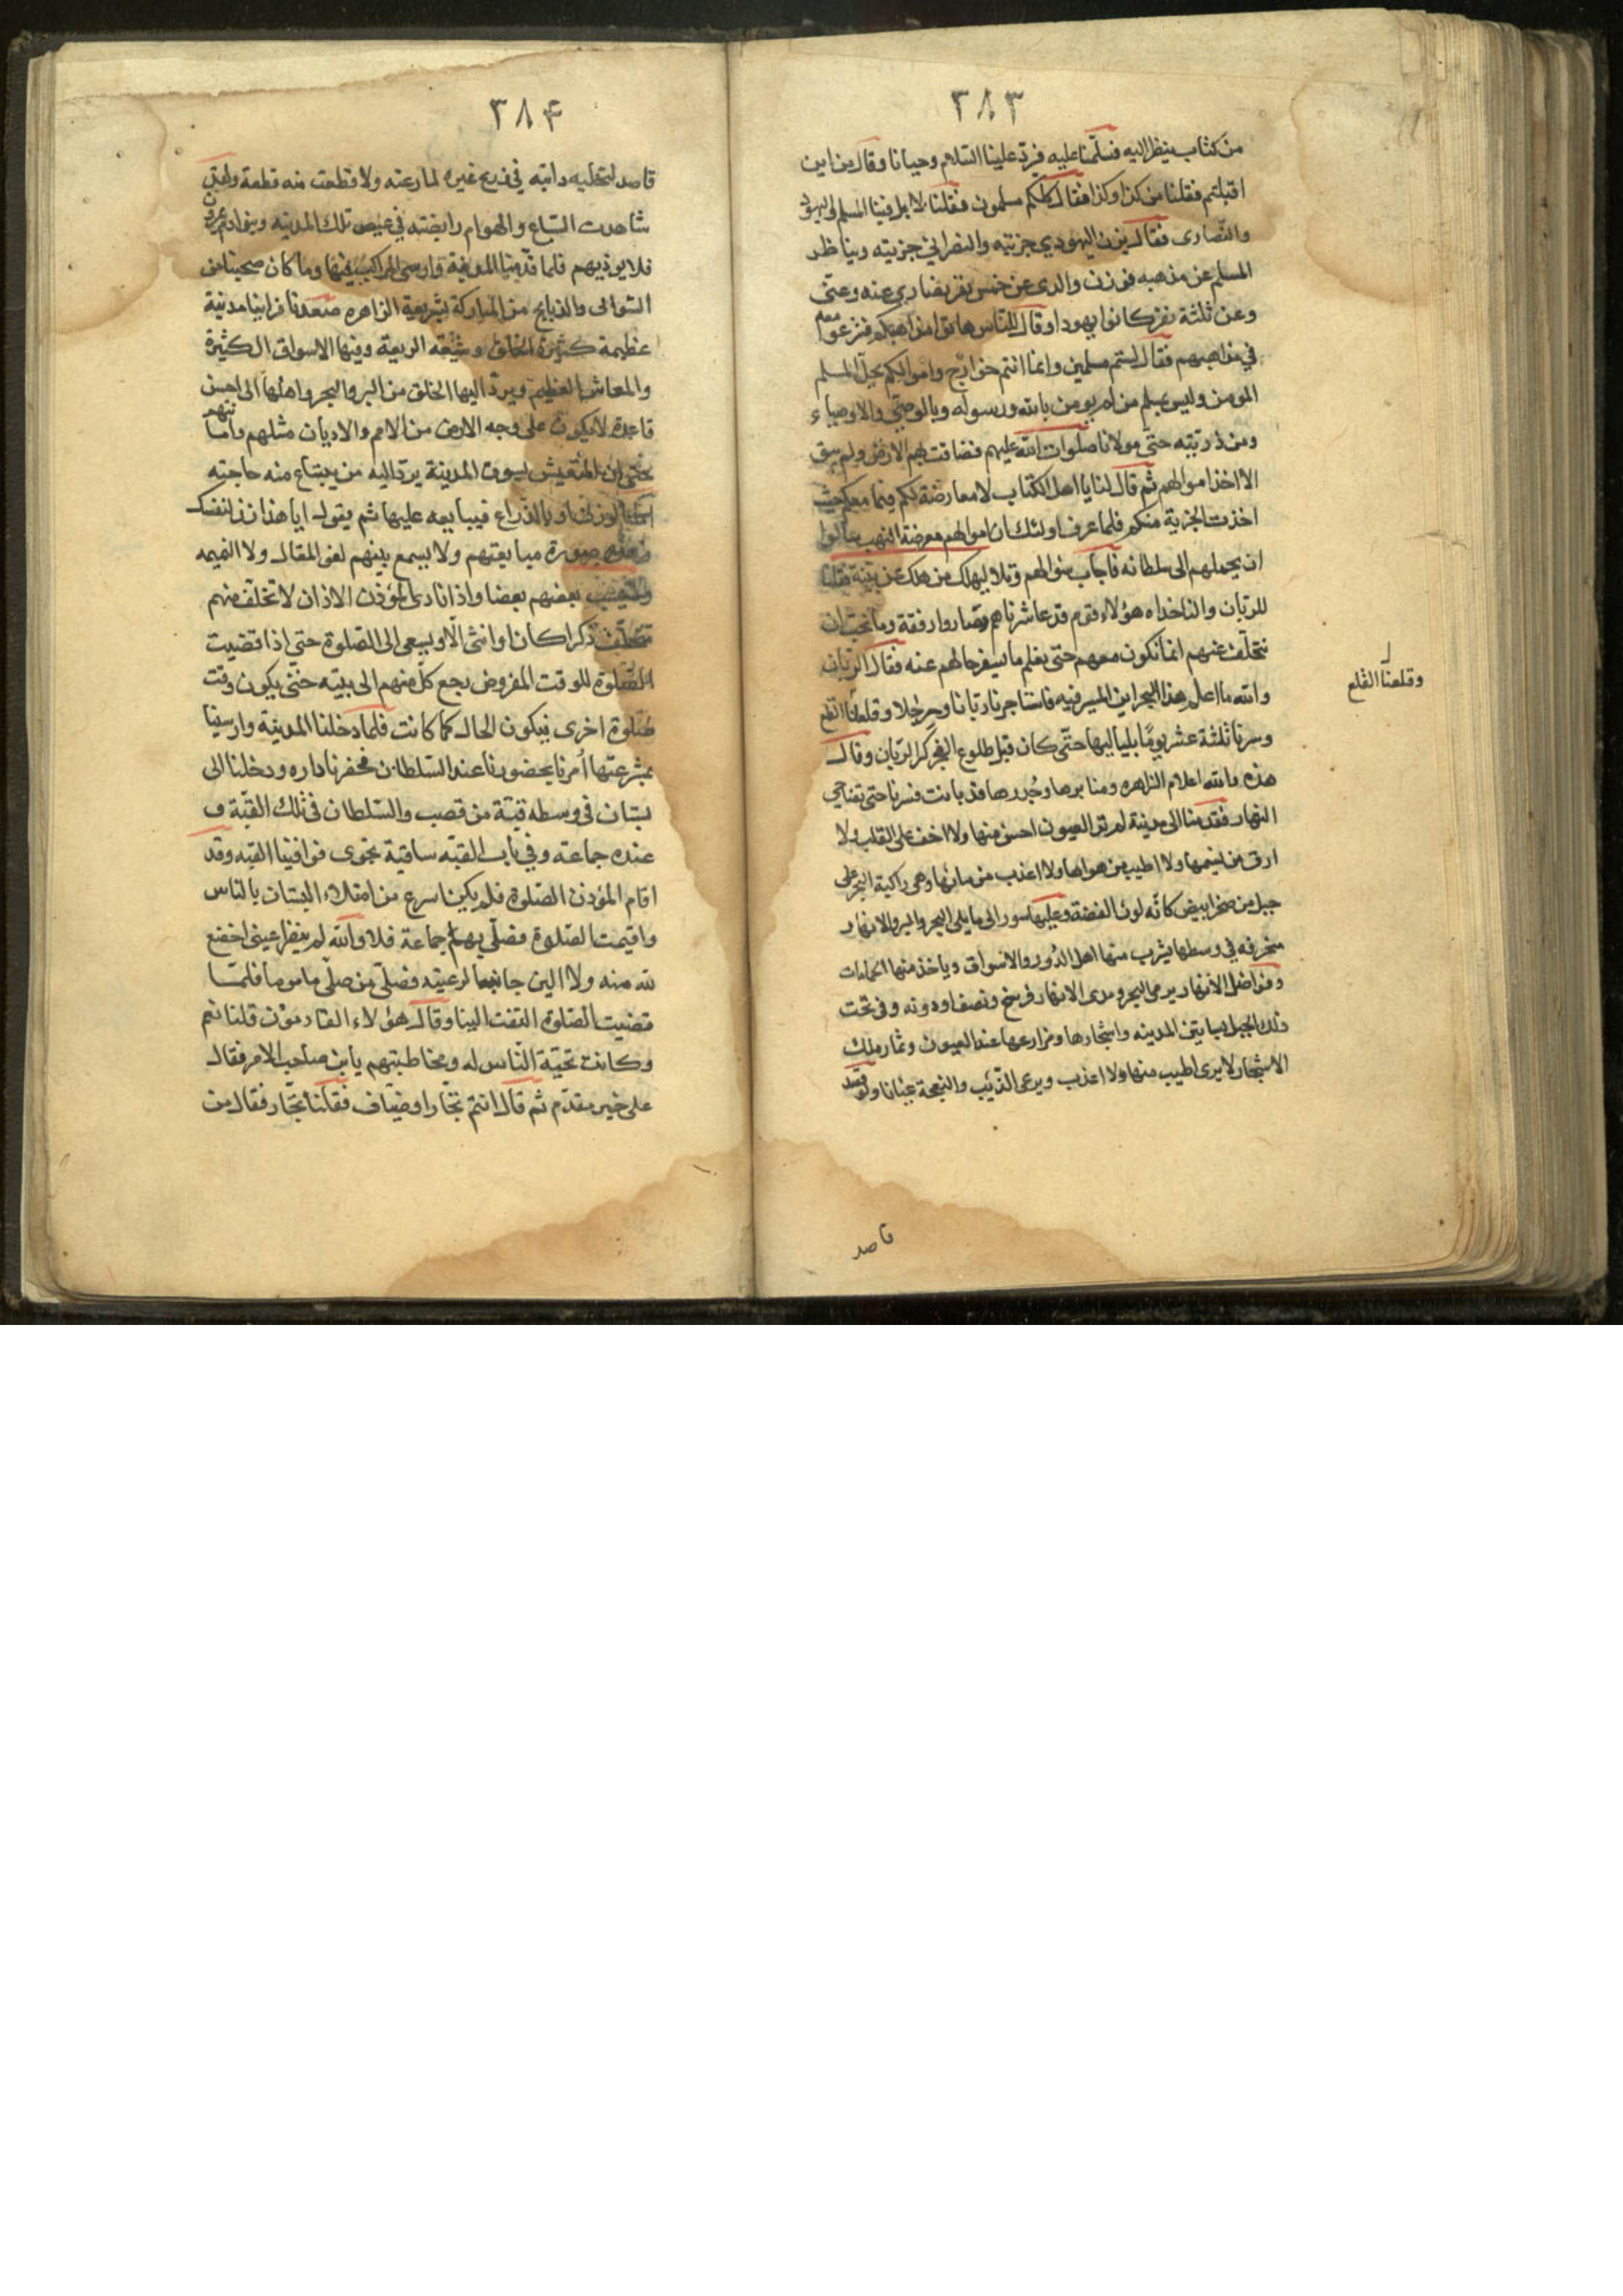 ٣٨٣
من كتاب ينظر اليه فسلّمنا عليه فردّ علينا السّلام وحيانا وقال من اين
اقبلتم فقلنا من كذا وكذا فقال كلكم مسلمون فقلنا لا بل فينا المسلم واليهود
والنّصارى فقال يزن اليهودي جزيته والنصراني جزيته ويناظر
المسلم عن مذهبه فوزن والدى عن خمس نفر نصارى عنه وعنّى
وعن ثلثة نفر كانوا يهودا وقال للنّاس هاتوا مذاهبكم فشرعوا معه
في مذاهبهم فقال لستم مسلمين وانما انتم خوارج واموالكم يحلّ للمسلم
المومن وليس بمسلم من لم يومن بالله ورسوله وبالوصيّ والاوصياء
ومن ذريّته حتّى مولانا صلوات الله عليهم فضاقت بهم الارض ولم يبق
الا اخذ اموالهم ثم قال لنا يا اهل الكتاب لا معارضة لكم فيما معكم حيث
اخذت الجزية منكم فلما عرف اولئك ان اموالهم معرضة النهب سالوا
ان يحملهم الى سلطانه فاجاب سوالهم وتلا ليهلك من هلك عن بيّنة فقلنا
للربّان والناخداه هؤلاء قوم قد عاشرناهم وصاروا رفقة وما نحبّ ان
نتخلّف عنهم انما نكون معهم حتى نعلم ما يسفر حالهم عنه فقال الربّان
والله ما اعلم هذا البحر اين المسير فيه فاستاجرنا ربّانا ورجلا وقلعنا القلع
وسرنا ثلثة عشر يومًا بلياليها حتّى كان قبل طلوع الفجر كبر الربان وقال
هذه والله اعلام الزاهره ومنابرها وجُدرها قد بانت فسرنا حتى تضاحى
النهار فقدمنا الى مدينة لم تر العيون احسن منها ولا اخف على القلب ولا
ارق من نسيمها ولا اطيب من هواها ولا اعذب من مائها وهى راكبة البحر على
جبل من صخر ابيض كانّه لون الفضة وعليها سور الى ما يلى البحر والبر والانهار
منحرفه في وسطها يشرب منها اهل الدّور والاسواق وياخذ منها الحمامات
وفواضل الانهار يرمى البحر ومدى الانهار فرسخ ونصف او دونه وفى تحت
ذلك الجبل بساتين المدينه واشجارها ومزارعها عند العيون وثمار تلك
الاشجار لا يرى اطيب منها ولا اعذب ويرعى الذّئب والنعجة عيانا ولو قصد
وقلعنا القلع
قاصد
٣٨۴
قاصد لتخليه دابّه في زرع غيره لما رعته ولا قطعت منه قطعة ولقد
شاهدت السّباع والهوام رابضة في غيض تلك المدينه وبنو ادم يمرون
فلا يوذيهم فلما قدمنا المدينة وارسى المراكب فيها وما كان صحبنا من
الشوالى والذبابح من المباركة بشريعة الزاهره صعدنا فراينا مدينة
عظيمة كثيرة الخلق وسّيعة الربعة وفيها الاسواق الكثيرة
والمعاش العظيم ويردّ اليها الخلق من البر والبحر واهلها الى احسن
قاعدة لا يكون على وجه الارض من الامم والاديان مثلهم وامانتهم
حتى ان المتعيش بسوق المدينة يردّ اليه من يبتاع منه حاجته
اما بالوزن او بالذّراع فيبايعه عليها ثم يقول ايا هذا زن لنفسك
فهذه صورة مبايعتهم ولا يسمع بينهم لغو المقال ولا النميمه
بعضهم بعضا واذا نادى المؤذن الاذان لا تخلّف منهم
متخلّف ذكرا كان او انثى الّا ويسعى الى الصّلوة حتى اذا قضيت
الصّلوة للوقت المفروض رجع كلّ منهم الى بيته حتى يكون وقت
صّلوة اخرى فيكون الحال كما كانت فلما دخلنا المدينة وارسينا
بمشرعتها امرنا بحضورنا عند السّلطان فحضرنا داره ودخلنا الى
بستان في وسطه قبّة من قصب والسّلطان في تلك القبّة و
عنده جماعة وفي باب القبّه ساقية تجرى فوافينا القبه وقد
اقام المؤذن الصّلوة فلم يكن اسرع من امتلاء البستان بالنّاس
واقيمت الصّلوة فصلّى بهم جماعة فلا والله لم ينظر عينى اخضع
لله منه ولا الين جانبا لرعيته فصلّى من صلّى ماموما فلمّا
قضيت الصّلوة التفت الينا وقال هؤلاء القادمون قلنا نعم
وكانت تحيّة النّاس له ومخاطبتهم يا بن صاحب الامر فقال
على خير مقدم ثم قال انتم تجّارا وضيّاف فقلنا تجّار فقال من